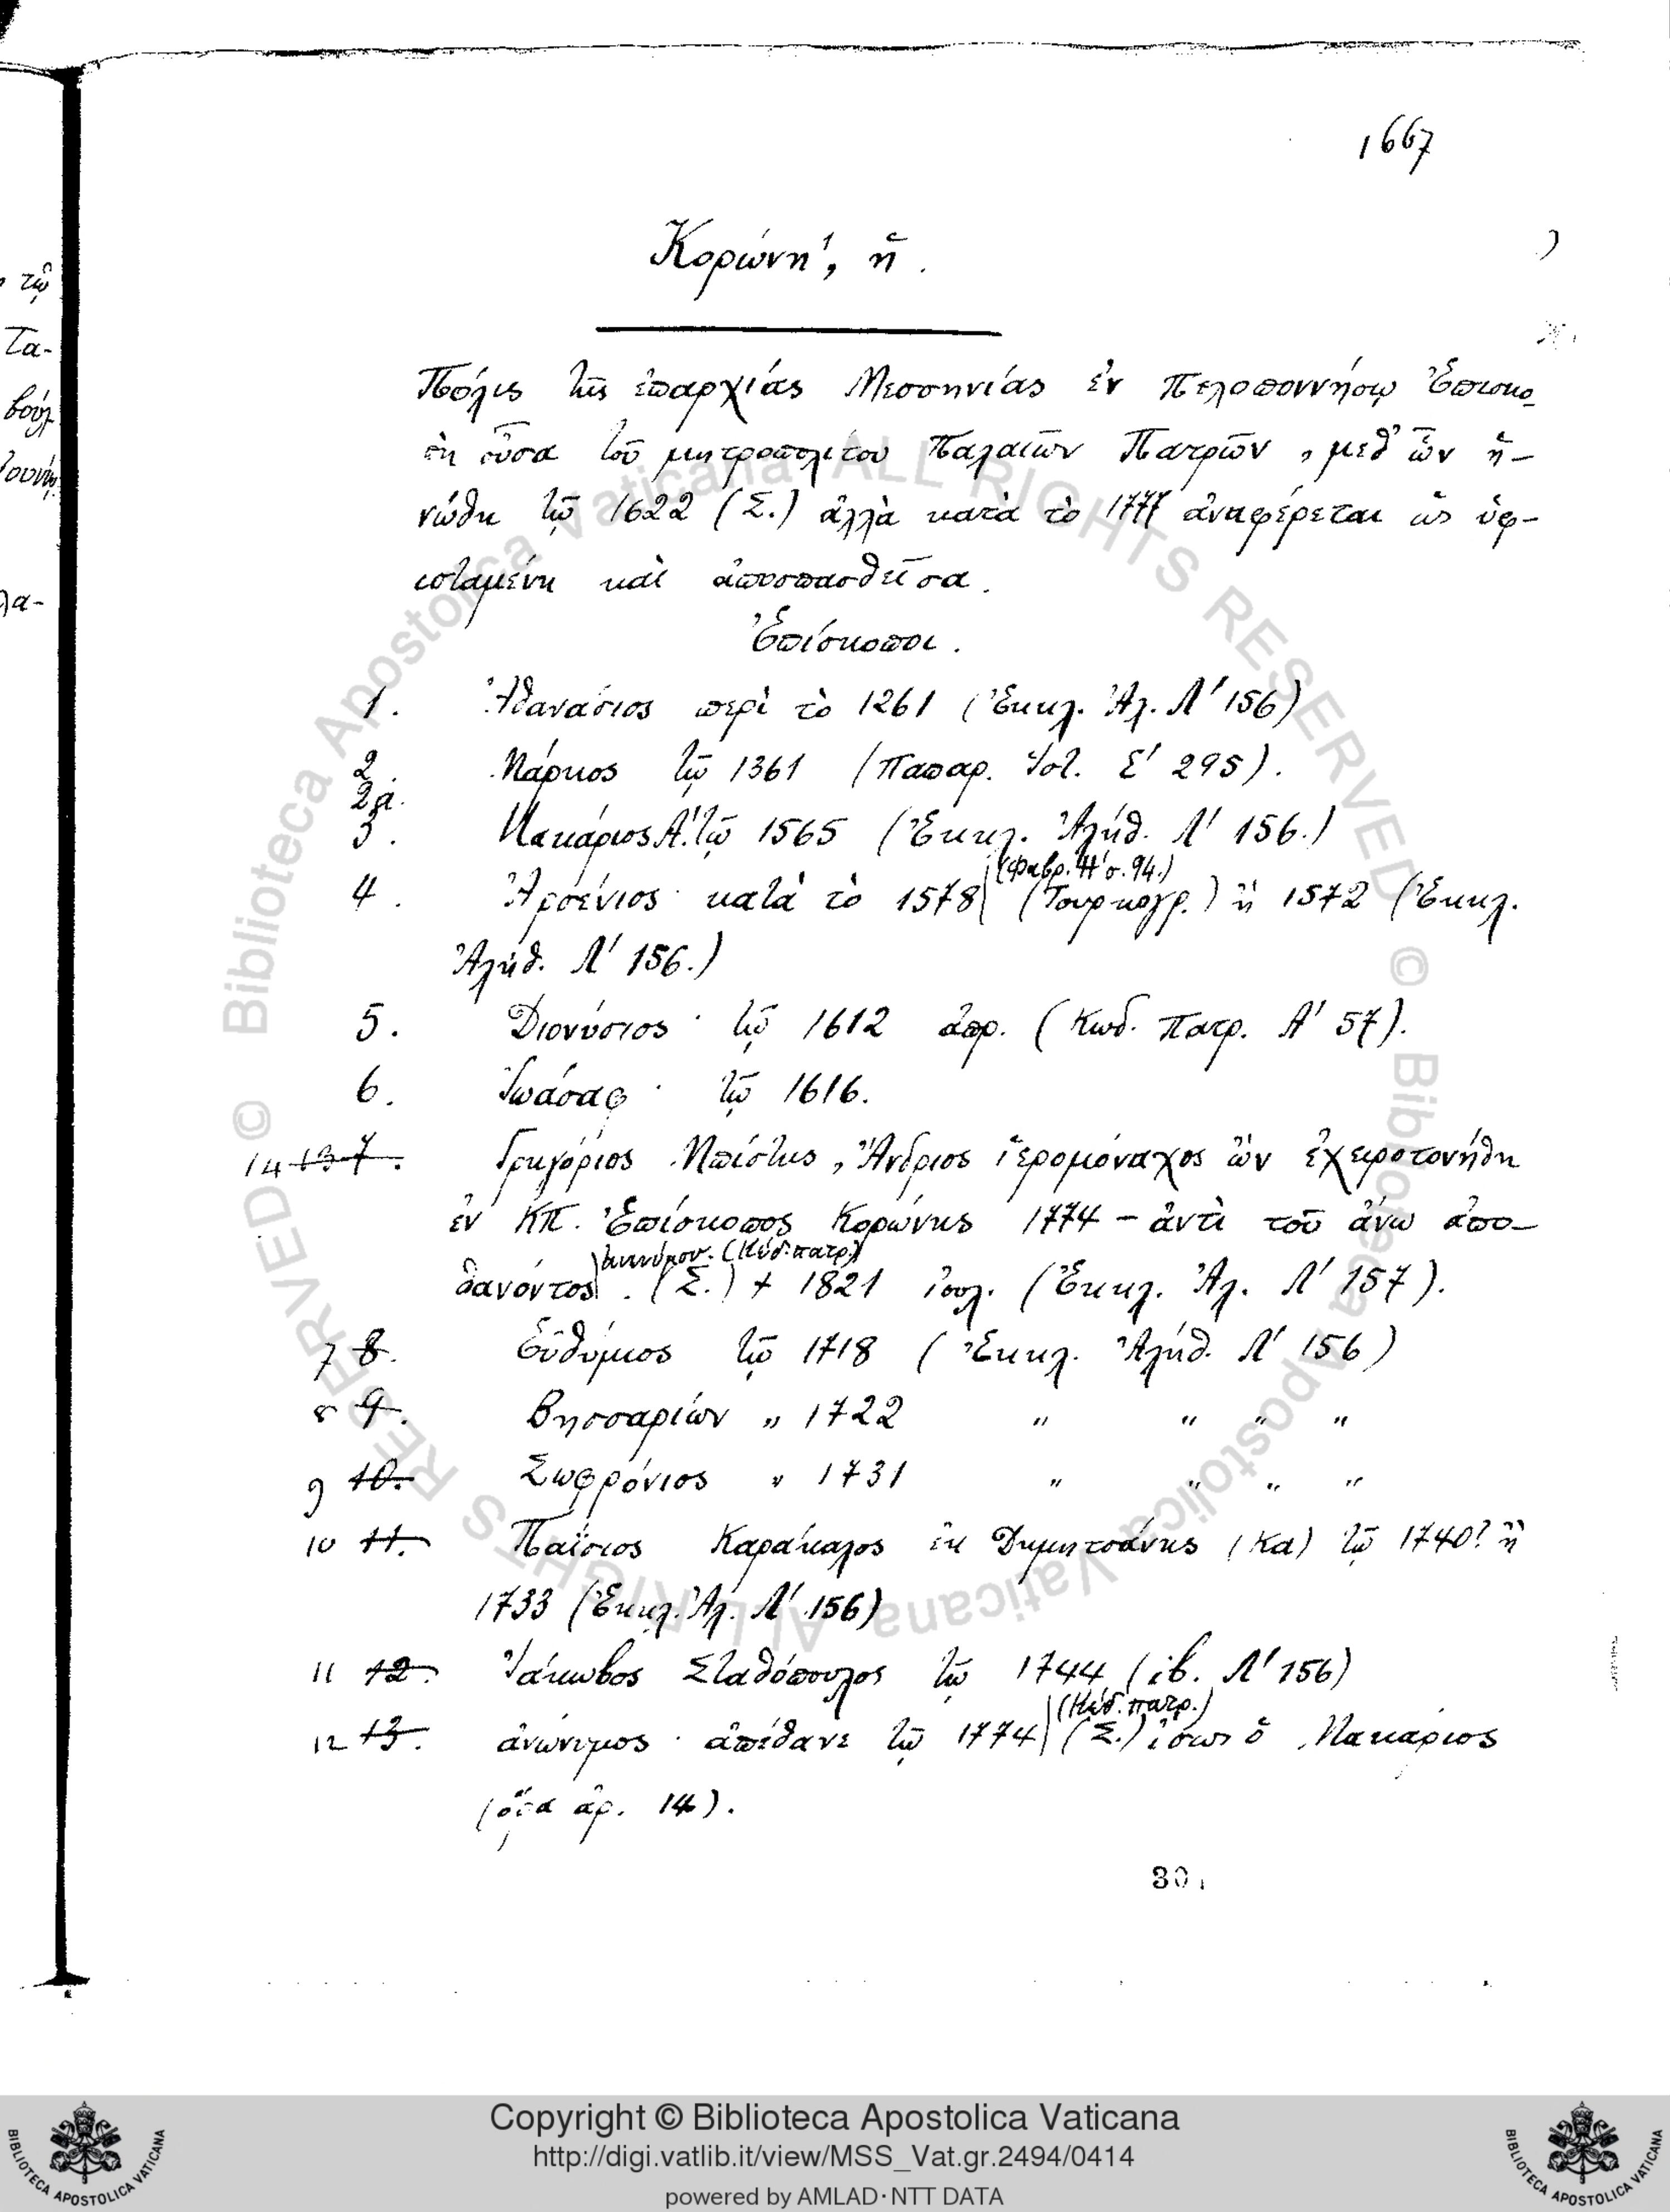 1667
Κορώνη, ἡ.
τῷ
Πόλις τῆς ἐπαρχίας Μεσσηνίας ἐν Πελοποννήσῳ Ἐπισκο-
πὴ οὖσα τοῦ μητροπολίτου Παλαιῶν Πατρῶν, μεθ' ὧν ἡ-
νώθη τῷ 1622 (Σ.) ἀλλὰ κατὰ τὸ 1777 ἀναφέρεται ὡς ὑφ-
ισταμένη καὶ ἀποσπασθεῖσα.
Ἐπίσκοποι.
1. Ἀθανάσιος περὶ τὸ 1261 (Ἐκκλ. Ἀλ. Λ' 156)
2. Μάρκος τῷ 1361 (Παπαρ. Ἱστ. Ε' 295).
2α.
3. Μακάριος Α'. τῷ 1565 (Ἐκκλ. Ἀλήθ. Λ' 156.)
(Φαβρ. Η' σ. 94.)
4. Ἀρσένιος· κατὰ τὸ 1578 (Τουρκογρ.) ἢ 1572 (Ἐκκλ.
Ἀλήθ. Λ' 156.)
5. Διονύσιος· τῷ 1612 ἀπρ. (Κωδ. Πατρ. Α' 57).
6. Ἰωάσαφ· τῷ 1616.
14 13 7. Γρηγόριος Μπίστης, Ἄνδριος ἱερομόναχος ὢν ἐχειροτονήθη
ἐν ΚΠ. Ἐπίσκοπος Κορώνης 1774 – ἀντὶ τοῦ ἄνω ἀπο-
ἀνωνύμου. (Κώδ. πατρ.)
θανόντος. (Σ.) + 1821 ἰουλ. (Ἐκκλ. Ἀλ. Λ' 157).
7 8. Εὐθύμιος τῷ 1718 (Ἐκκλ. Ἀλήθ. Λ' 156)
8 9. Βησσαρίων „ 1722 „ „ „ „
9 10. Σωφρόνιος „ 1731 „ „ „ „
10 11. Παΐσιος Καράκαλος ἐκ Δημητσάνης (Κα) τῷ 1740? ἢ
1733 (Ἐκκλ. Ἀλ. Λ' 156)
11 12. Ἰάκωβος Σταθόπουλος τῷ 1744 (ib. Λ' 156)
(Κώδ. πατρ.)
12 13. ἀνώνυμος· ἀπέθανε τῷ 1774 (Σ.) ἴσως ὁ Μακάριος
(ὅρα ἀρ. 14).
30
Copyright © Biblioteca Apostolica Vaticana
http://digi.vatlib.it/view/MSS_Vat.gr.2494/0414
powered by AMLAD·NTT DATA
BIBLIOTECA APOSTOLICA VATICANA
BIBLIOTECA APOSTOLICA VATICANA
© Biblioteca Apostolica Vaticana ALL RIGHTS RESERVED
© Biblioteca Apostolica Vaticana ALL RIGHTS RESERVED